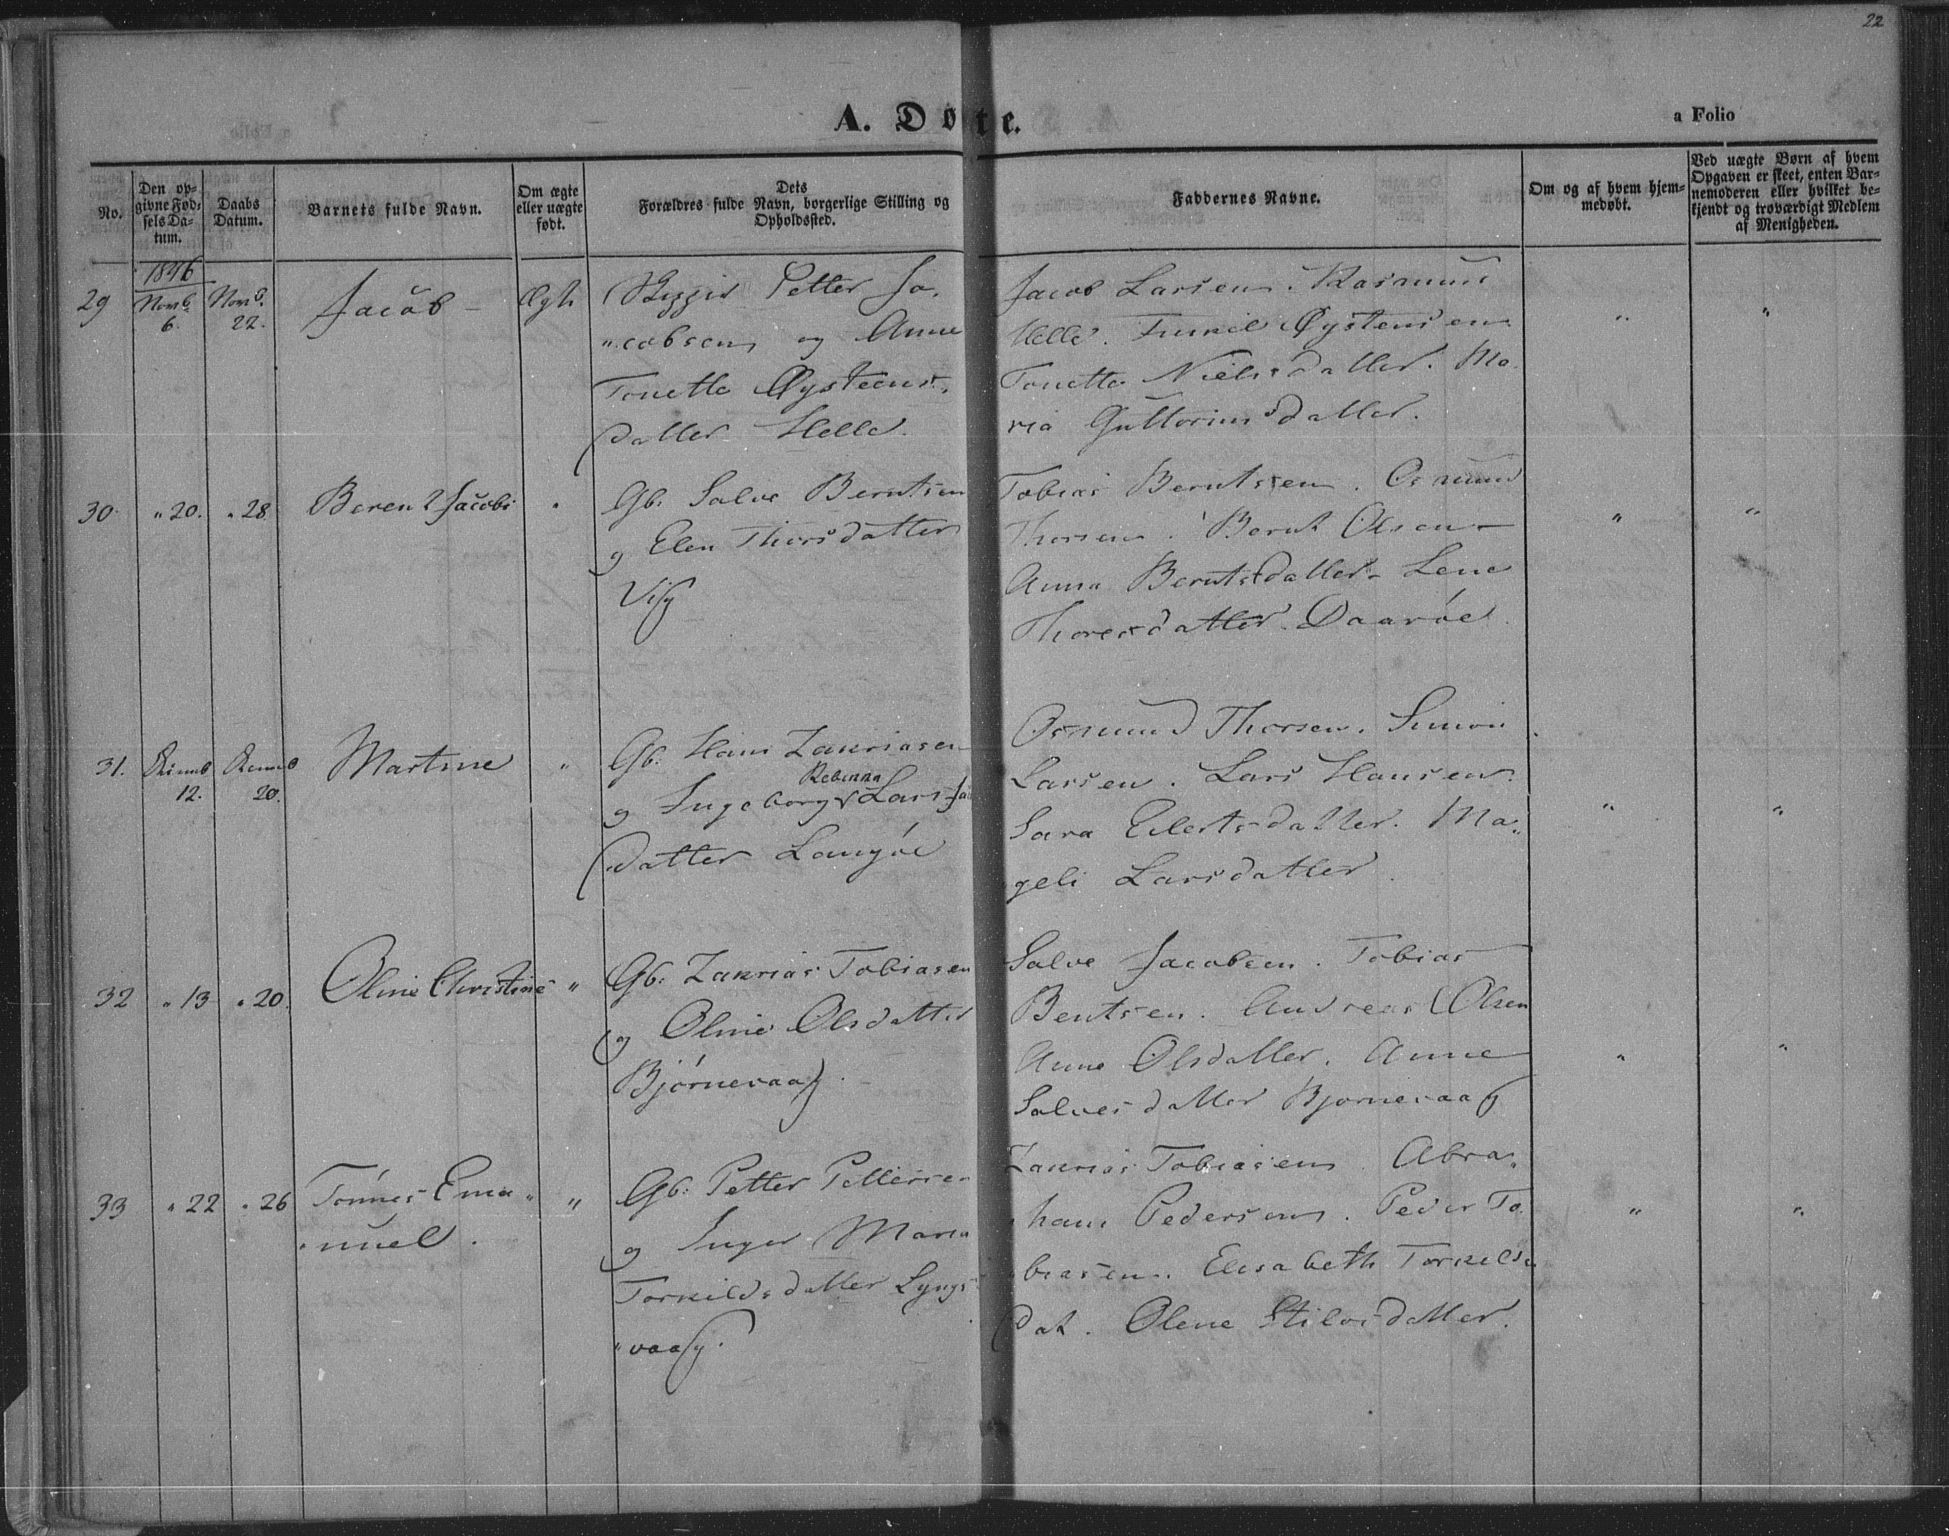 22
A. Døte.
a Folio
No.
Den op-
givne Fød-
sels Da-
tum.
Daabs
Datum.
Barnets fulde Navn.
Om ægte
eller uægte
født.
Dets
Forældres fulde Navn, borgerlige Stilling og
Opholdssted.
Faddernes Navne.
Om og af hvem hjem-
medøbt.
Ved uægte Børn af hvem
Opgaven er skeet, enten Bar-
nemoderen eller hvilket be-
kjendt og troværdigt Medlem
af Menigheden.
1846
29
Novb.
6.
Novb.
22.
Jacob
Ægte
Petter Ja-
cobsen og Anne
Tonette Øysteens-
datter Helle.
Jacob Larsen. Rasmus
Helle. Øystensen
Tonette Nielsdatter. Ma-
ria Guttormsdatter.
"
"
30
" 20.
" 28
Berent Jacob
"
Gb. Salve Berntsen
og Elen Thorsdatter
Tobias Berntsen. Osmund
Thorsen. Bernt Olsen
Anna Berntsdatter. Lene
Thoresdatter Daarøe.
"
"
31.
12.
20.
Martine
"
Gb. Hans Zakriasen
og Ingeborg Rebekka Lars
datter Langøe
Osmund Thorsen. Simon
Larsen. Lars Hansen.
Sara Eilertsdatter. Ma-
geli Larsdatter.
"
"
32
" 13
" 20.
Oline Christine
"
Gb. Zakrias Tobiasen
og Oline Olsdatter
Bjørnevaag.
Salve Jacobsen. Tobias
Bentsen. Andreas Olsen
Anne Olsdatter. Anne
Salvesdatter Bjørnevaag
"
"
33
" 22
" 26
Tønnes Ema-
nuel.
"
Gb. Petter Pettersen
og Inger Maria
Torkildsdatter Lyngs-
vaag.
Zakrias Tobiasen. Abra-
ham Pedersen. Peder To-
biasen. Elisabeth Torkilds
dat. Olene
"
"